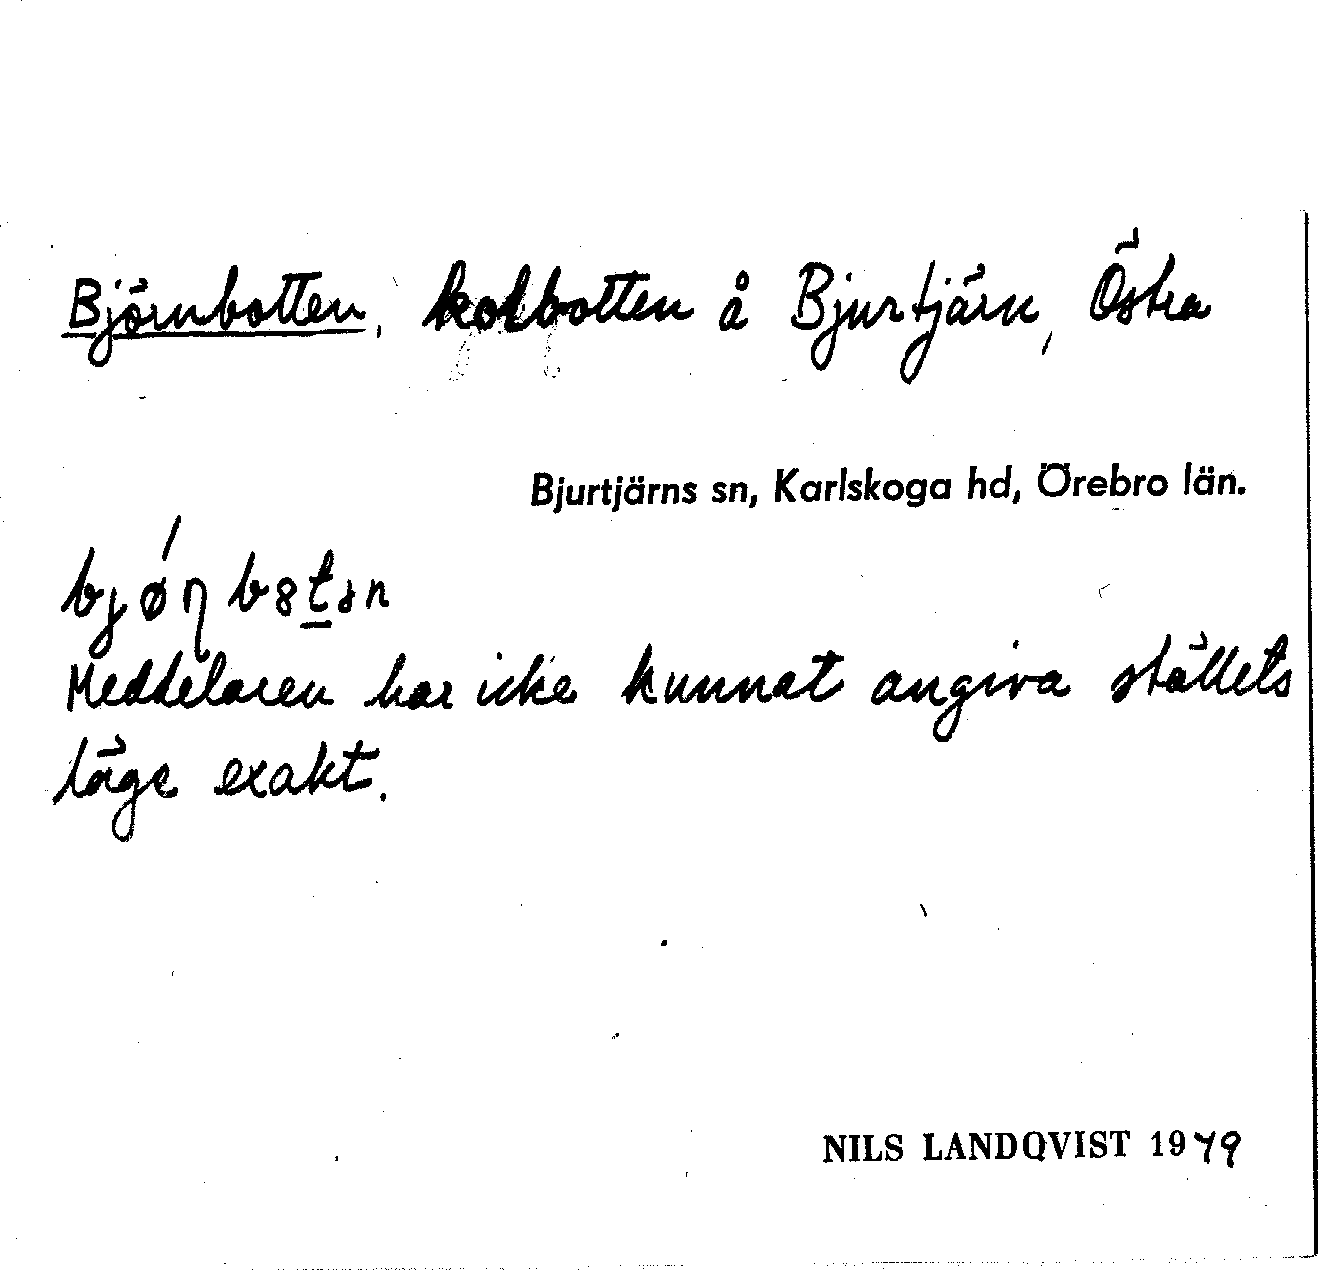 Björnbotten, kolbotten å Bjurtjärn, Östra
Bjurtjärns sn, Karlskoga hd, Örebro län.
Meddelaren har icke kunnat angiva ställets
läge exakt.
NILS LANDQVIST 1949